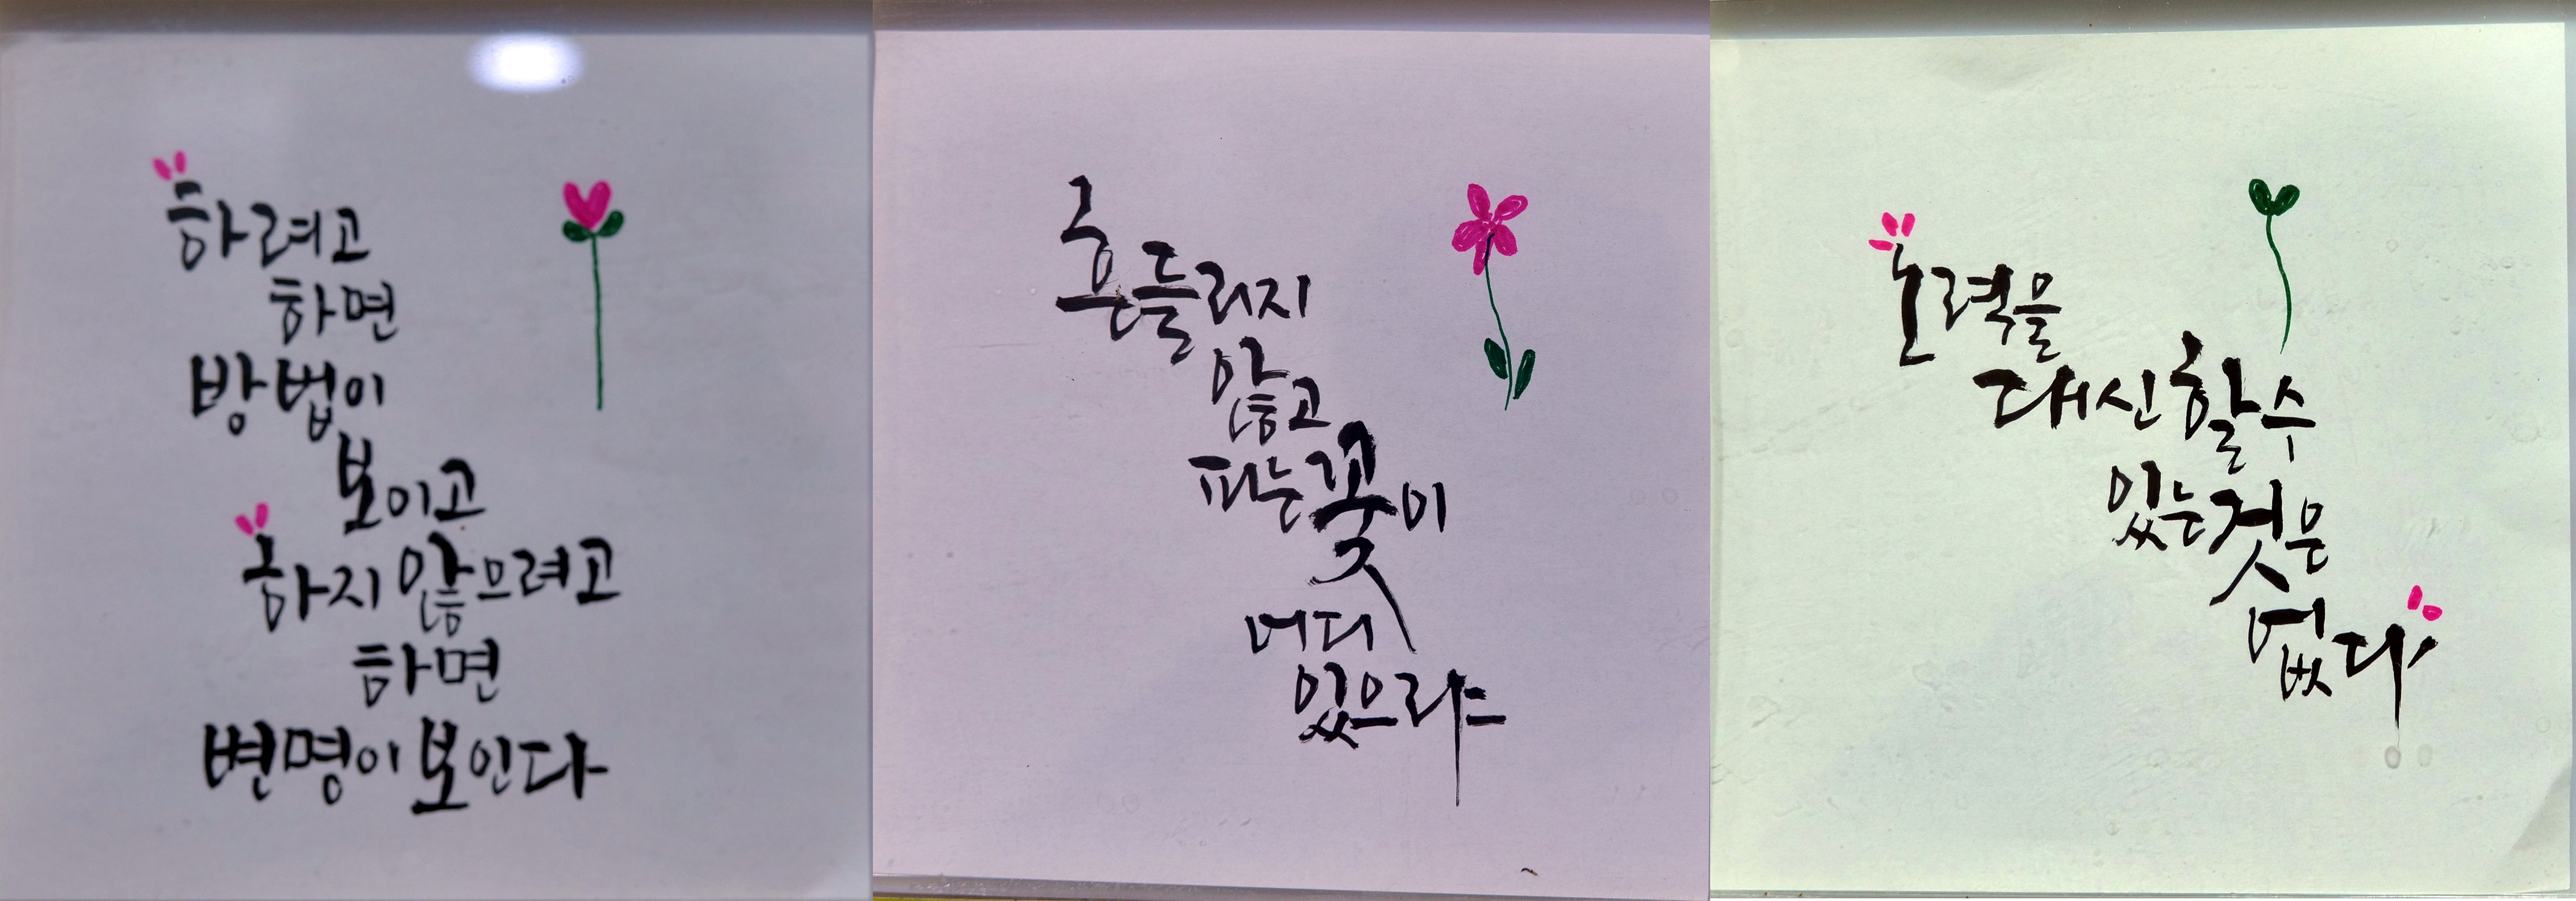 하려고
하면
방법이
보이고
하지 않으려고
하면
변명이 보인다
흔들리지
않고
피는 꽃이
어디
있으랴
노력을
대신 할 수
있는 것은
없다